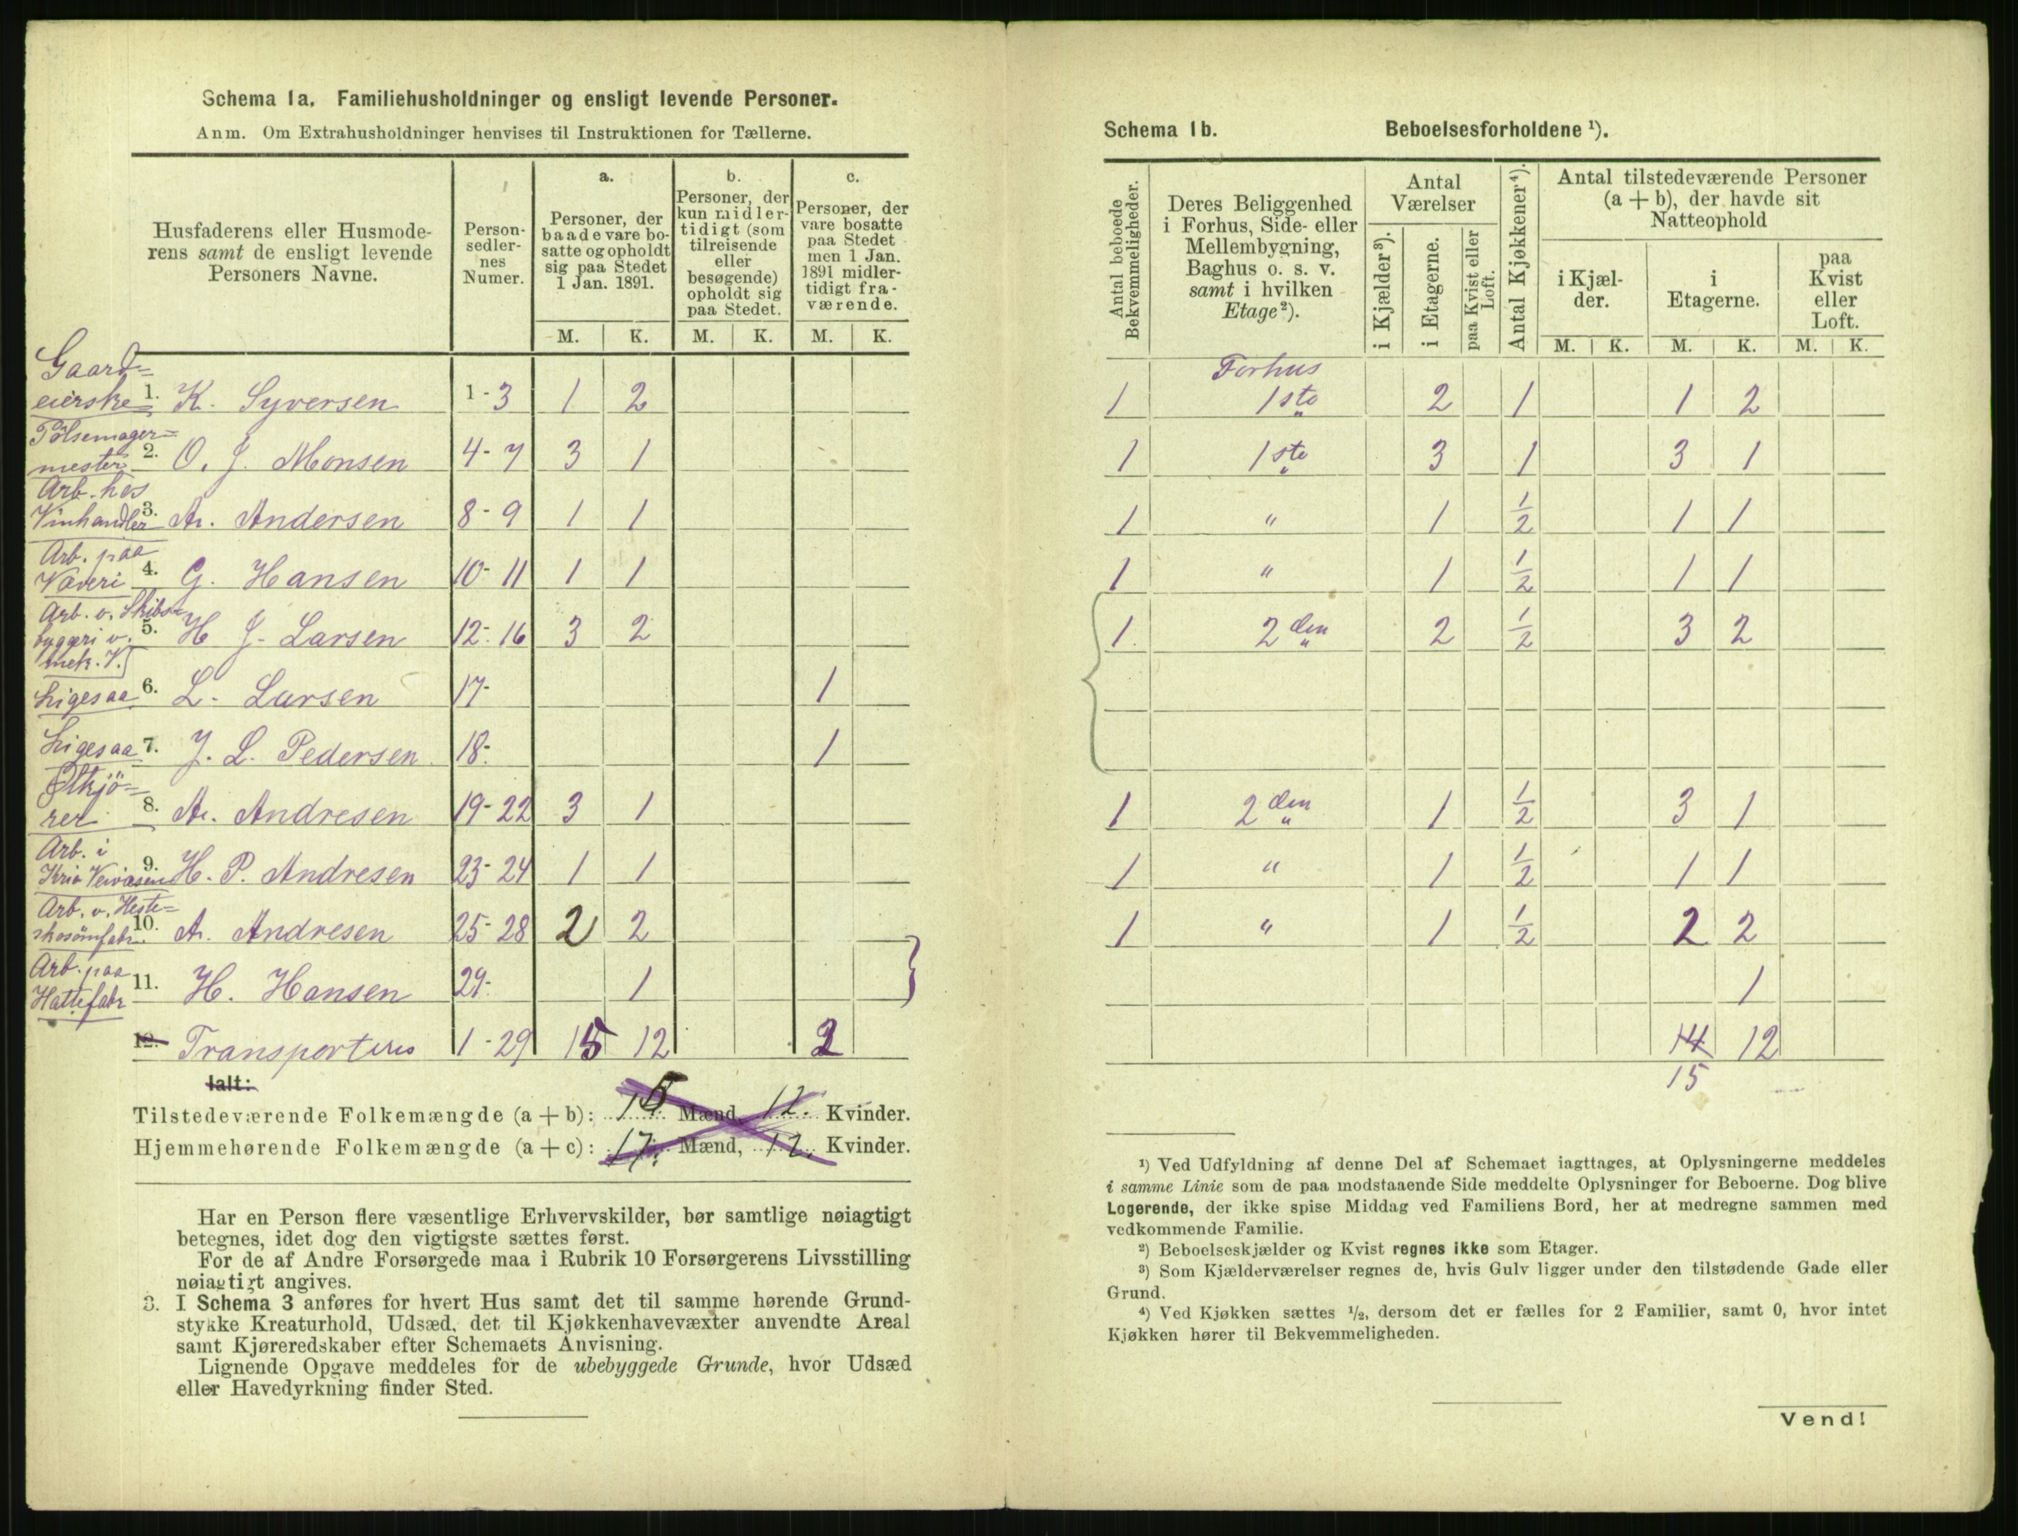 Schema 1a. Familiehusholdninger og ensligt levende Personer.
Anm. Om Extrahusholdninger henvises til Instruktionen for Tællerne.
Husfaderens eller Husmoderens samt de ensligt levende Personers Navne.
Personsedlernes Numer.
a. Personer, der baade vare bosatte og opholdt sig paa Stedet 1 Jan. 1891.
b. Personer, der kun midlertidigt (som tilreisende eller besøgende) opholdt sig paa Stedet.
c. Personer, der vare bosatte paa Stedet men 1 Jan. 1891 midlertidigt fraværende.
M. K. M. K. M. K.
Gaardeierske 1. K. Syversen 1-3 1 2
Pölsemagermester 2. O. J. Monsen 4-7 3 1
Arb. hos Vinhandler 3. A. Andersen 8-9 1 1
Arb. paa Væveri 4. G. Hansen 10-11 1 1
Arb. v. Skibsbyggeri v. mek. V. 5. H J. Larsen 12-16 3 2
Ligesaa 6. L. Larsen 17- 1
Ligesaa 7. J. L. Pedersen 18- 1
Ölkjörer 8. A. Andresen 19-22 3 1
Arb. i Kria 9. H. P. Andresen 23-24 1 1
Arb. v. Hesteskosömfabr. 10. A. Andresen 25-28 2 2
Arb. paa Hattefabr 11. H. Hansen 29- 1
12. Transporteres 1-29 15 12 2
Ialt:
Tilstedeværende Folkemængde (a + b): 15 Mænd, 12. Kvinder.
Hjemmehørende Folkemængde (a + c): 17. Mænd, 12. Kvinder.
Har en Person flere væsentlige Erhvervskilder, bør samtlige nøiagtigt
betegnes, idet dog den vigtigste sættes først.
For de af Andre Forsørgede maa i Rubrik 10 Forsørgerens Livsstilling
nøiagtigt angives.
3. I Schema 3 anføres for hvert Hus samt det til samme hørende Grund-
stykke Kreaturhold, Udsæd, det til Kjøkkenhavevæxter anvendte Areal
samt Kjøreredskaber efter Schemaets Anvisning.
Lignende Opgave meddeles for de ubebyggede Grunde, hvor Udsæd
eller Havedyrkning finder Sted.
Schema 1b. Beboelsesforholdene ¹).
Antal beboede Bekvemmeligheder.
Deres Beliggenhed i Forhus, Side- eller Mellembygning, Baghus o. s. v. samt i hvilken Etage²).
Antal Værelser
i Kjælder³).
i Etagerne.
paa Kvist eller Loft.
Antal Kjøkkener⁴).
Antal tilstedeværende Personer (a + b), der havde sit Natteophold
i Kjælder. i Etagerne. paa Kvist eller Loft.
M. K. M. K. M. K.
Forhus
1 1ste 2 1 1 2
1 1ste 3 1 3 1
1 " 1 1/2 1 1
1 " 1 1/2 1 1
1. 2den 2 1/2 3 2
1 2den 1 1/2 3 1
1 " 1 1/2 1 1
1 " 1 1/2 2 2
1
14 12
15
¹) Ved Udfyldning af denne Del af Schemaet iagttages, at Oplysningerne meddeles
i samme Linie som de paa modstaaende Side meddelte Oplysninger for Beboerne. Dog blive
Logerende, der ikke spise Middag ved Familiens Bord, her at medregne sammen med
vedkommende Familie.
²) Beboelseskjælder og Kvist regnes ikke som Etager.
³) Som Kjælderværelser regnes de, hvis Gulv ligger under den tilstødende Gade eller
Grund.
⁴) Ved Kjøkken sættes ½, dersom det er fælles for 2 Familier, samt 0, hvor intet
Kjøkken hører til Bekvemmeligheden.
Vend!